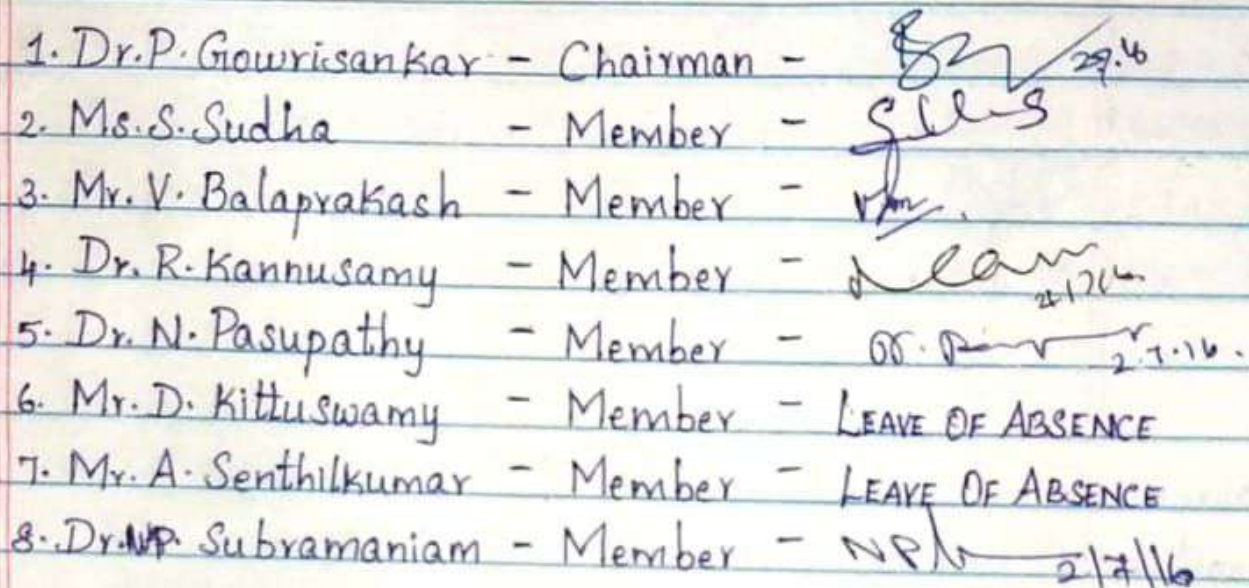 1. Dr. P. Gowrisankar - Chairman -
2. Ms. S. Sudha - Member -
3. Mr. V. Balaprakash - Member -
4. Dr. R. Kannusamy - Member -
5. Dr. N. Pasupathy - Member - 2.7.16.
6. Mr. D. Kittuswamy - Member - LEAVE OF ABSENCE
7. Mr. A. Senthilkumar - Member - LEAVE OF ABSENCE
8. Dr. NP. Subramaniam - Member - 2/7/16